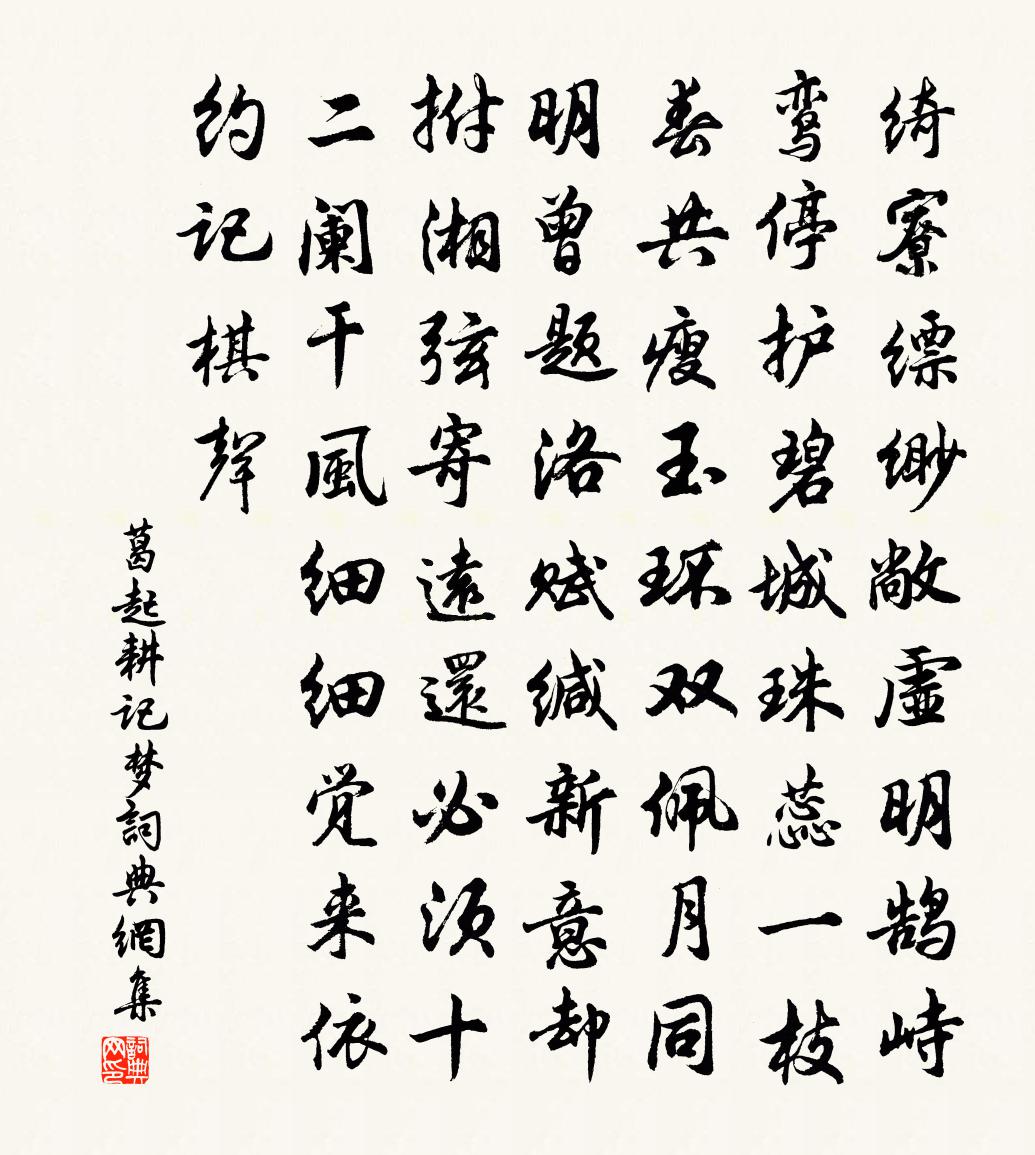 绮寮缥缈敞虚明鹄峙
鸾停护碧城珠蕊一枝
春共瘦玉环双佩月同
明曾题洛赋缄新意却
拊湘弦寄遠還必须十
二阑干風细细觉来依
约记棋聲
葛起耕记梦詞典網集
詞典
网印